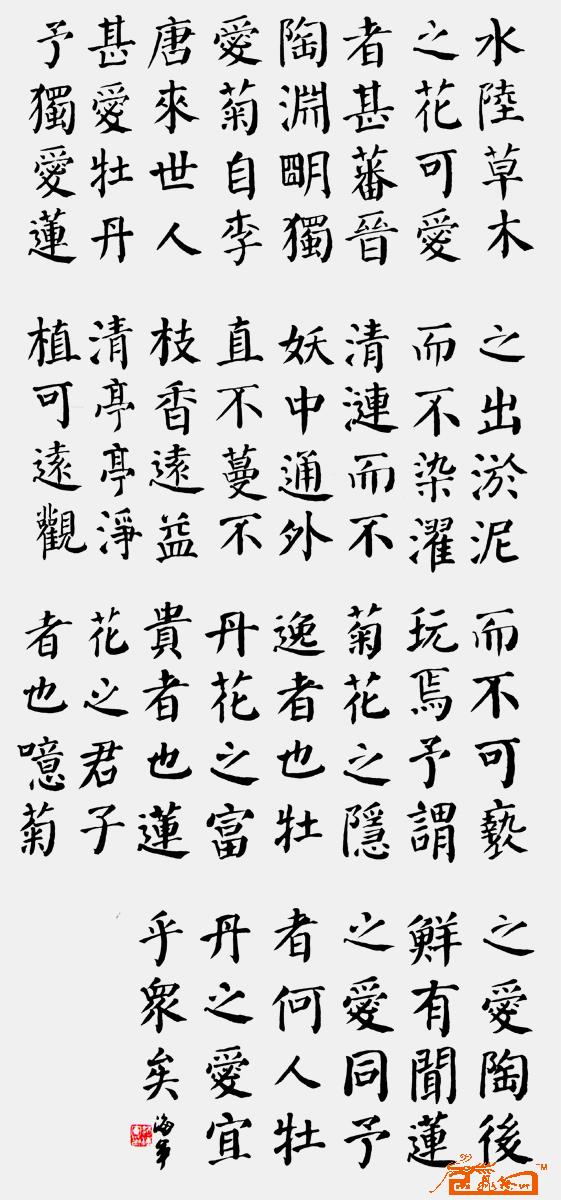 水陸草木
之花可愛
者甚蕃晉
陶淵朙獨
愛菊自李
唐來世人
甚愛牡丹
予獨愛蓮
之出淤泥
而不染濯
清漣而不
妖中通外
直不蔓不
枝香遠益
清亭亭淨
植可遠觀
而不可褻
玩焉予謂
菊花之隱
逸者也牡
丹花之富
貴者也蓮
花之君子
者也噫菊
之愛陶後
鮮有聞蓮
之愛同予
者何人牡
丹之愛宜
乎衆矣